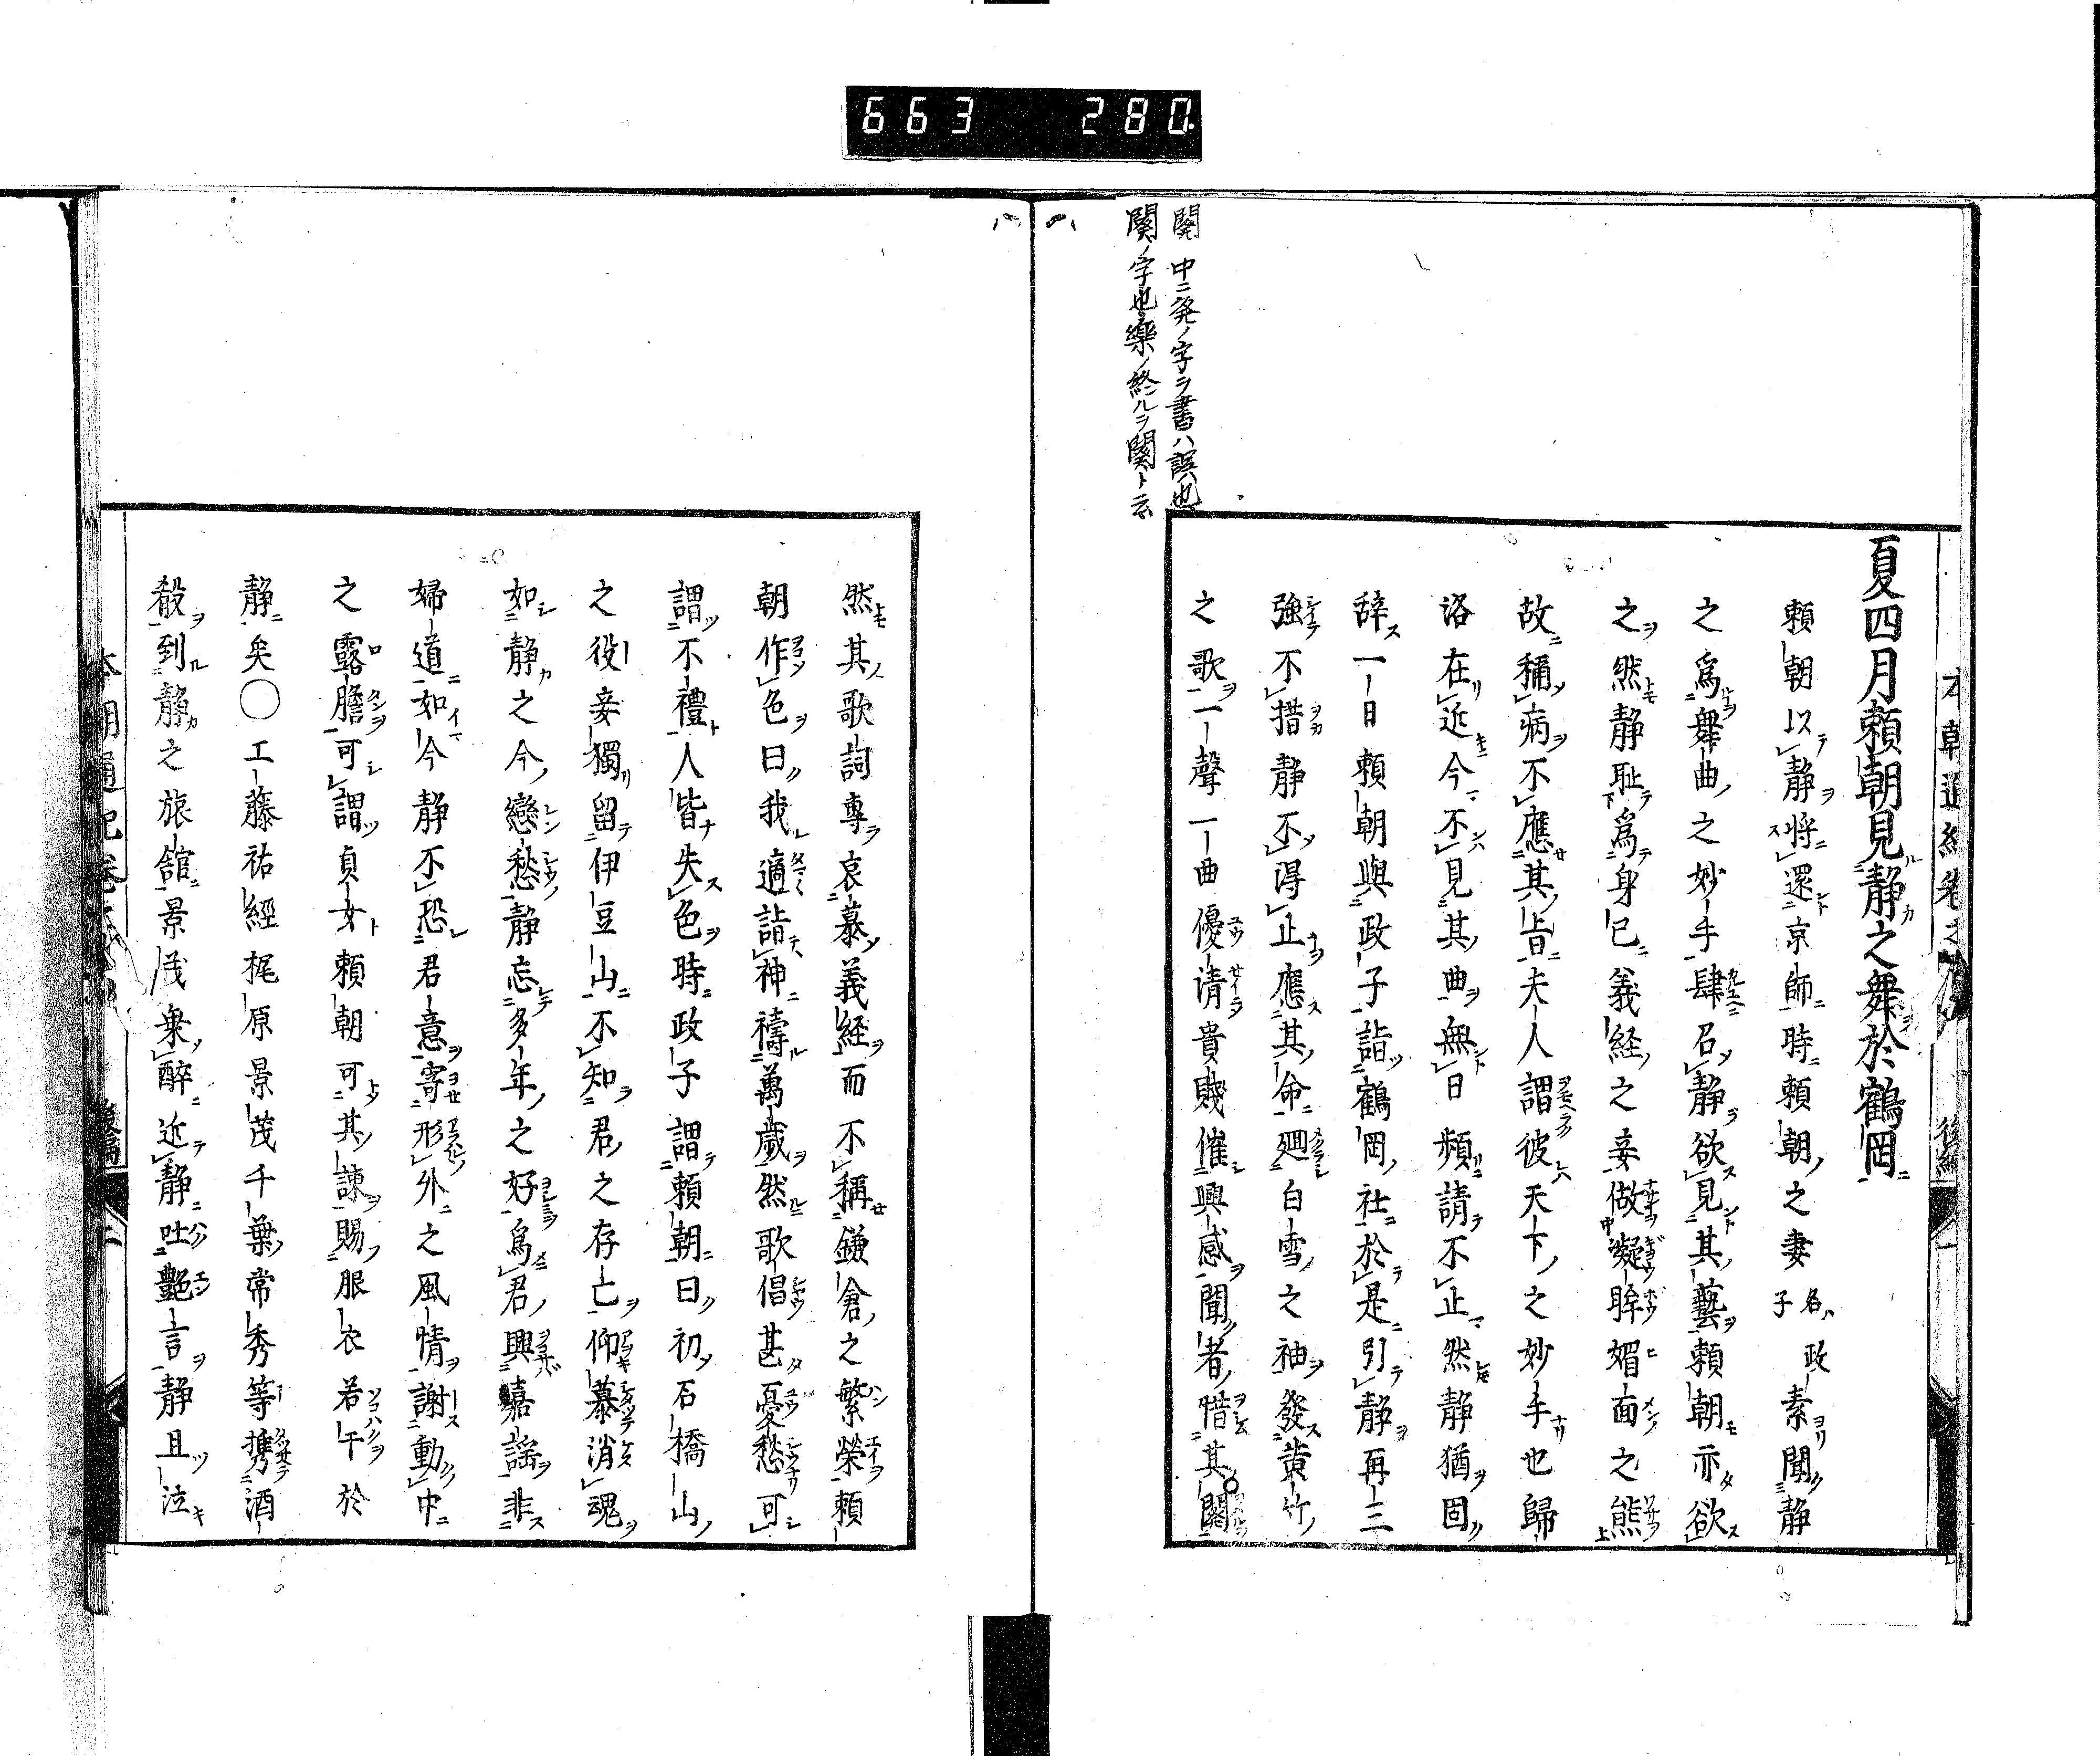 663 280.
闋 中ニ発ノ字ヲ書ハ誤也
闋ノ字也樂ノ終ルヲ闋ト云
夏四月賴朝見静之舞於鶴岡
賴朝以静将還京師時賴朝之妻名政子素聞静
之爲舞曲之妙手肆召静欲見其藝賴朝亦欲
之然静耻爲身已義経之妾做凝眸媚面之熊
故稱病不應其旨夫人謂彼天下之妙手也歸
洛在近今不見其曲無日頻請不止然静猶固
辞一日賴朝與政子詣鶴岡社於是引静再三
強不措静不得止應其命廻白雪之袖發黄竹
之歌一聲一曲優清貴賤催興感聞者惜其闋
然其歌詞專哀慕義経而不稱鎌倉之繁榮賴
朝作色曰我適詣神禱萬歳然歌倡甚憂愁可
謂不禮人皆失色時政子謂賴朝曰初石橋山
之役妾獨留伊豆山不知君之存亡仰慕消魂
如静之今戀愁静忘多年之好爲君興嘉謡非
婦道如今静不恐君意寄形外之風情謝動中
之露膽可謂貞女賴朝可其諌賜服衣若干於
静矣〇工藤祐經梶原景茂千葉常秀等携酒
殽到静之旅館景茂乗醉近静吐艶言静且泣